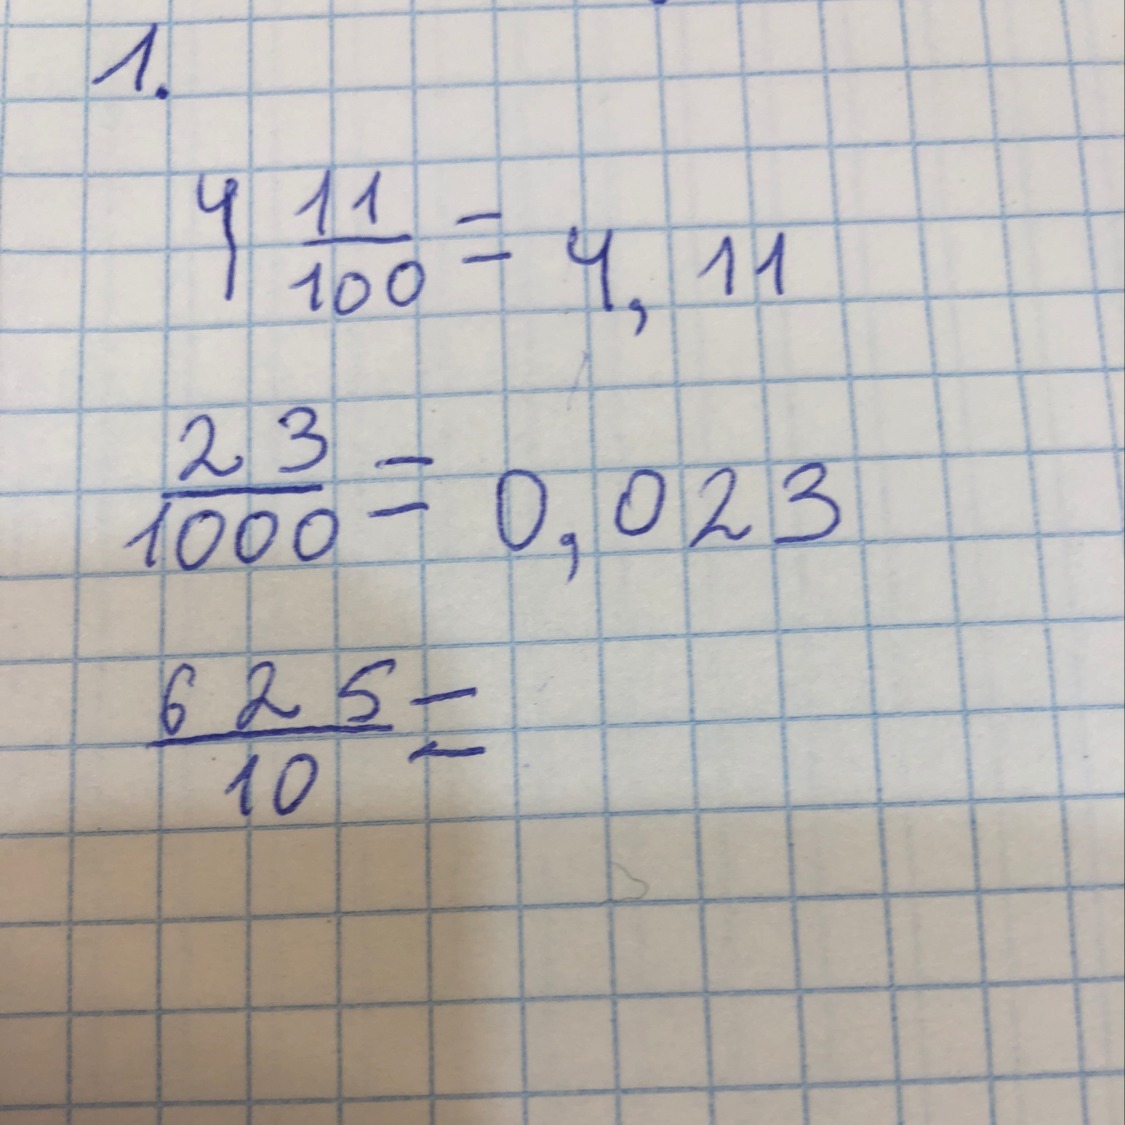 1.
4 11/100 = 4,11
23/1000 = 0,023
625/10 =